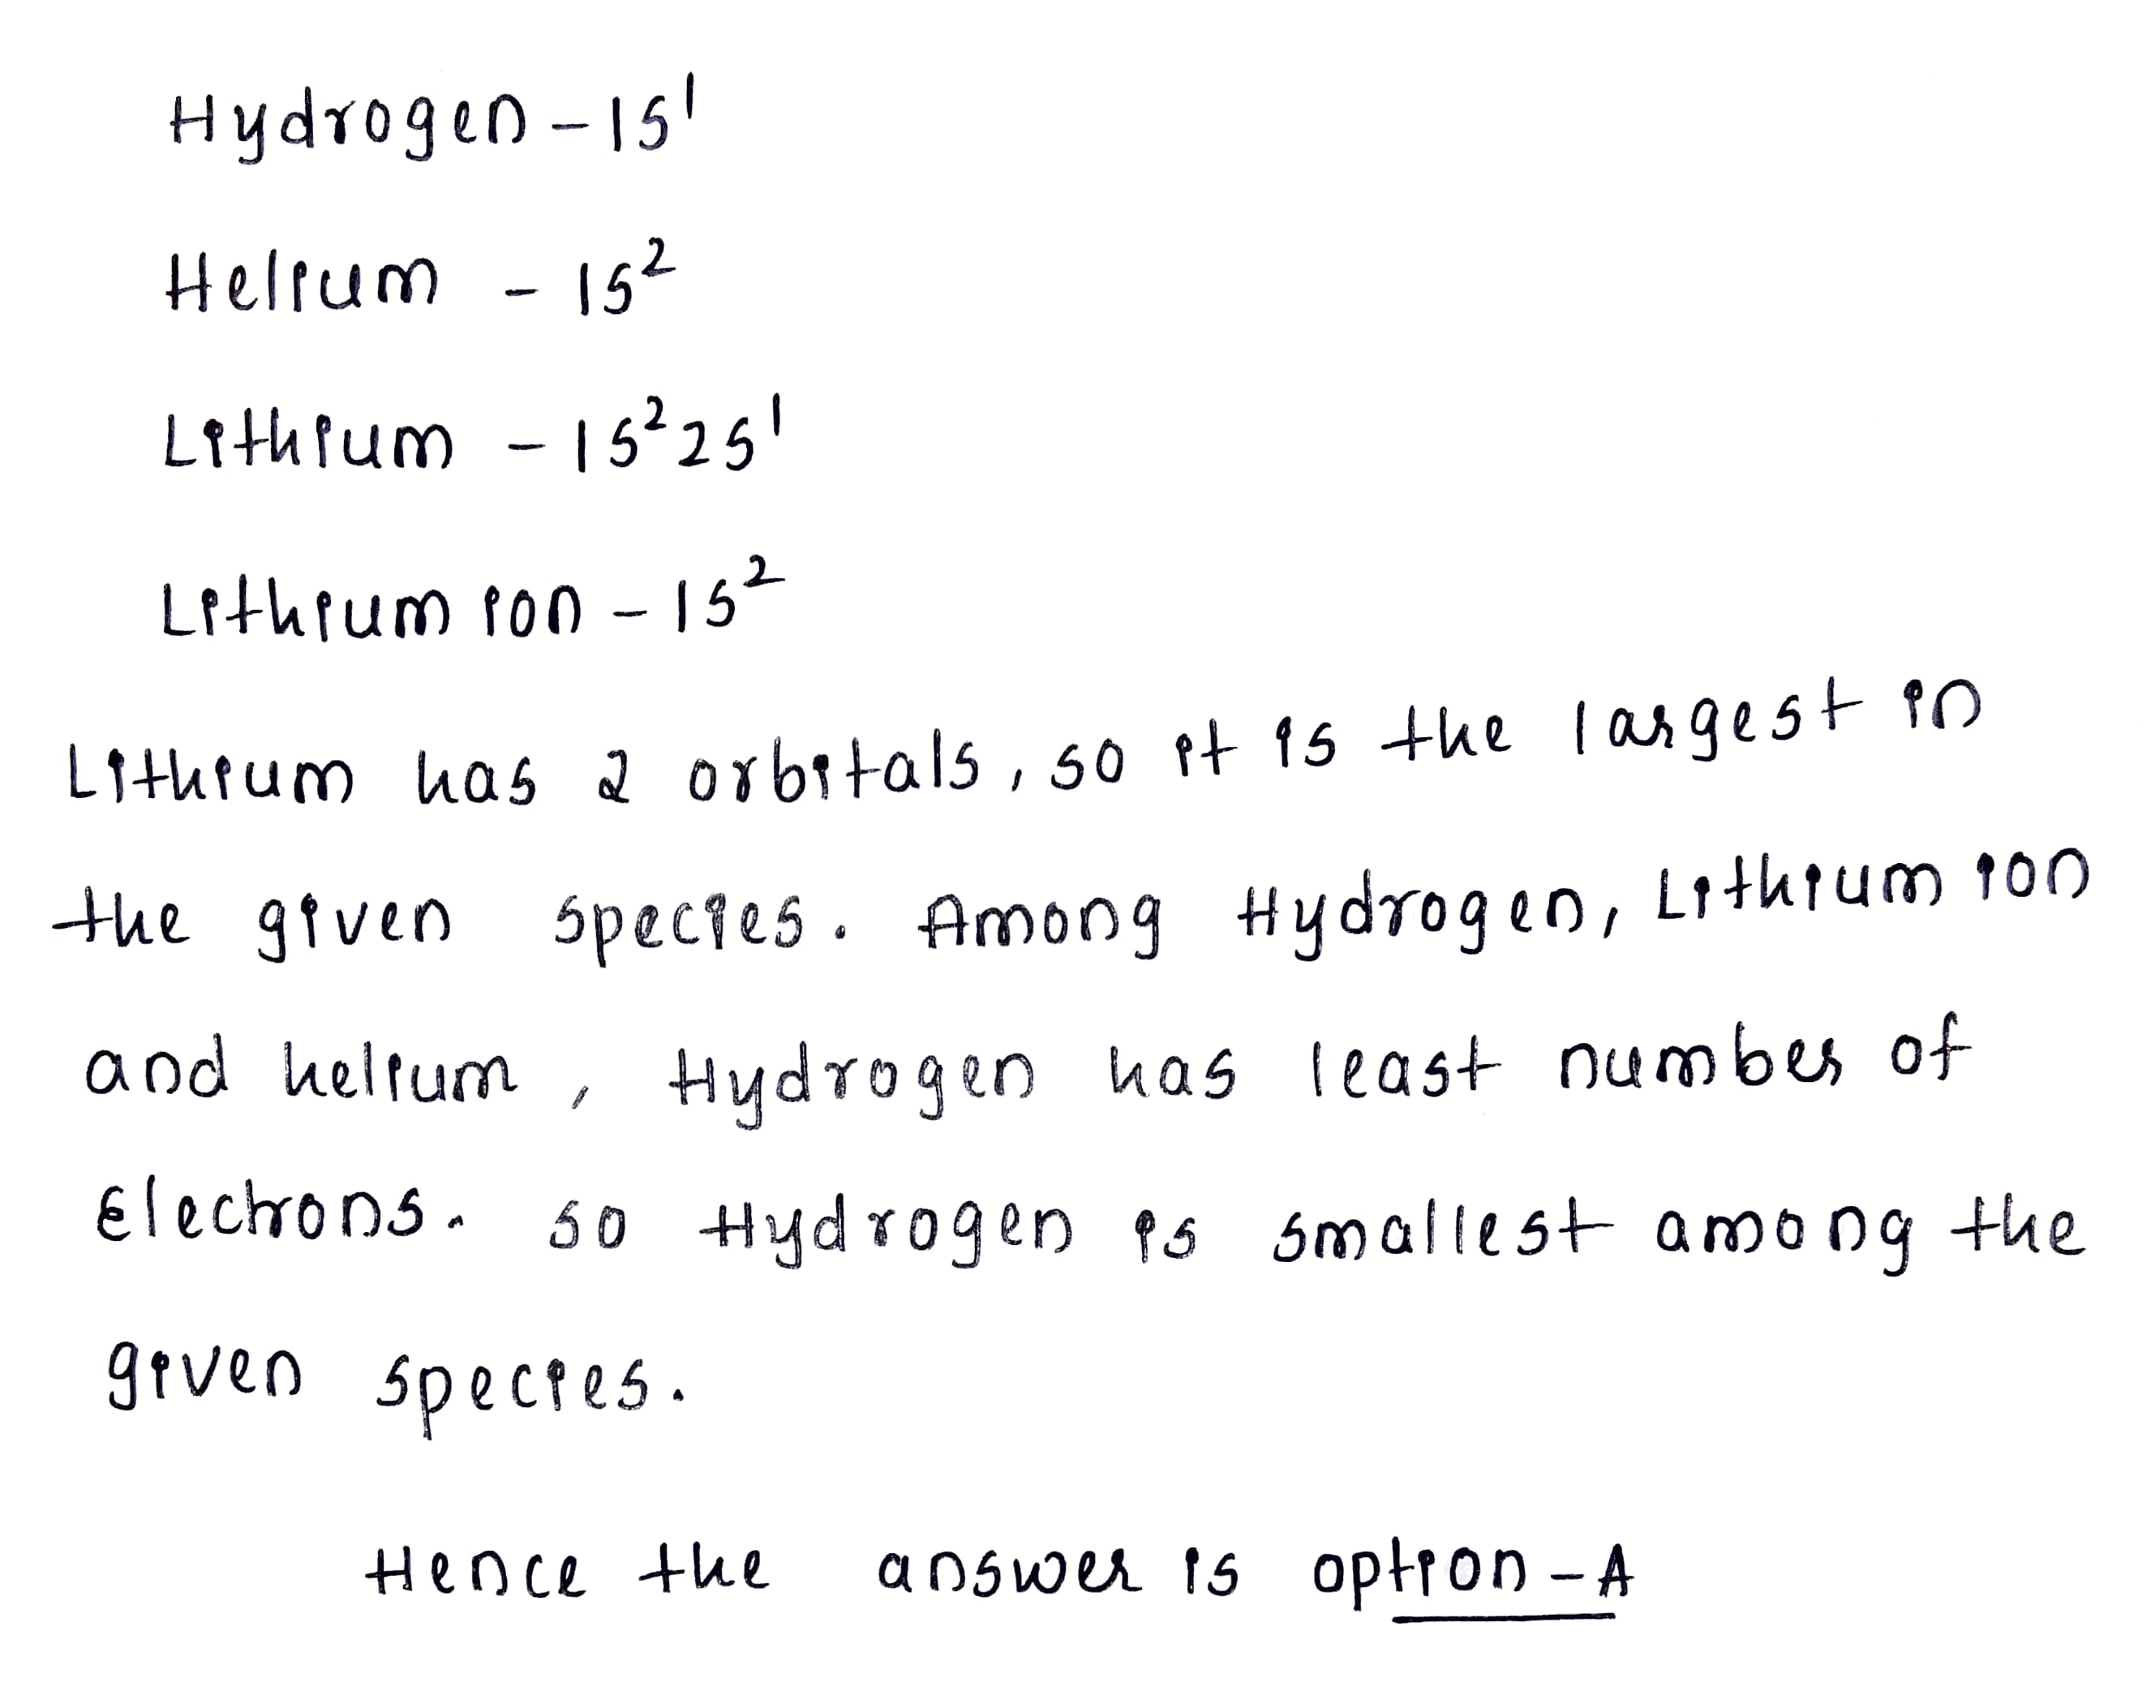 Hydrogen - 1s¹
Helium - 1s²
Lithium - 1s²2s¹
Lithium ion - 1s²
Lithium has 2 orbitals, so it is the largest in
the given species. Among Hydrogen, Lithium ion
and helium, Hydrogen has least number of
Electrons. so Hydrogen is smallest among the
given species.
Hence the answer is option - A